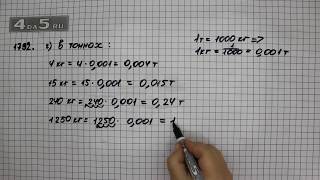 4DA5.RU
1792. а) в тоннах:
1т = 1000 кг =>
1кг = 1/1000 = 0,001т
4 кг = 4 · 0,001 = 0,004т
15 кг = 15 · 0,001 = 0,015т
240 кг = 240 · 0,001 = 0,24 т
1250 кг = 1250 · 0,001 = 1